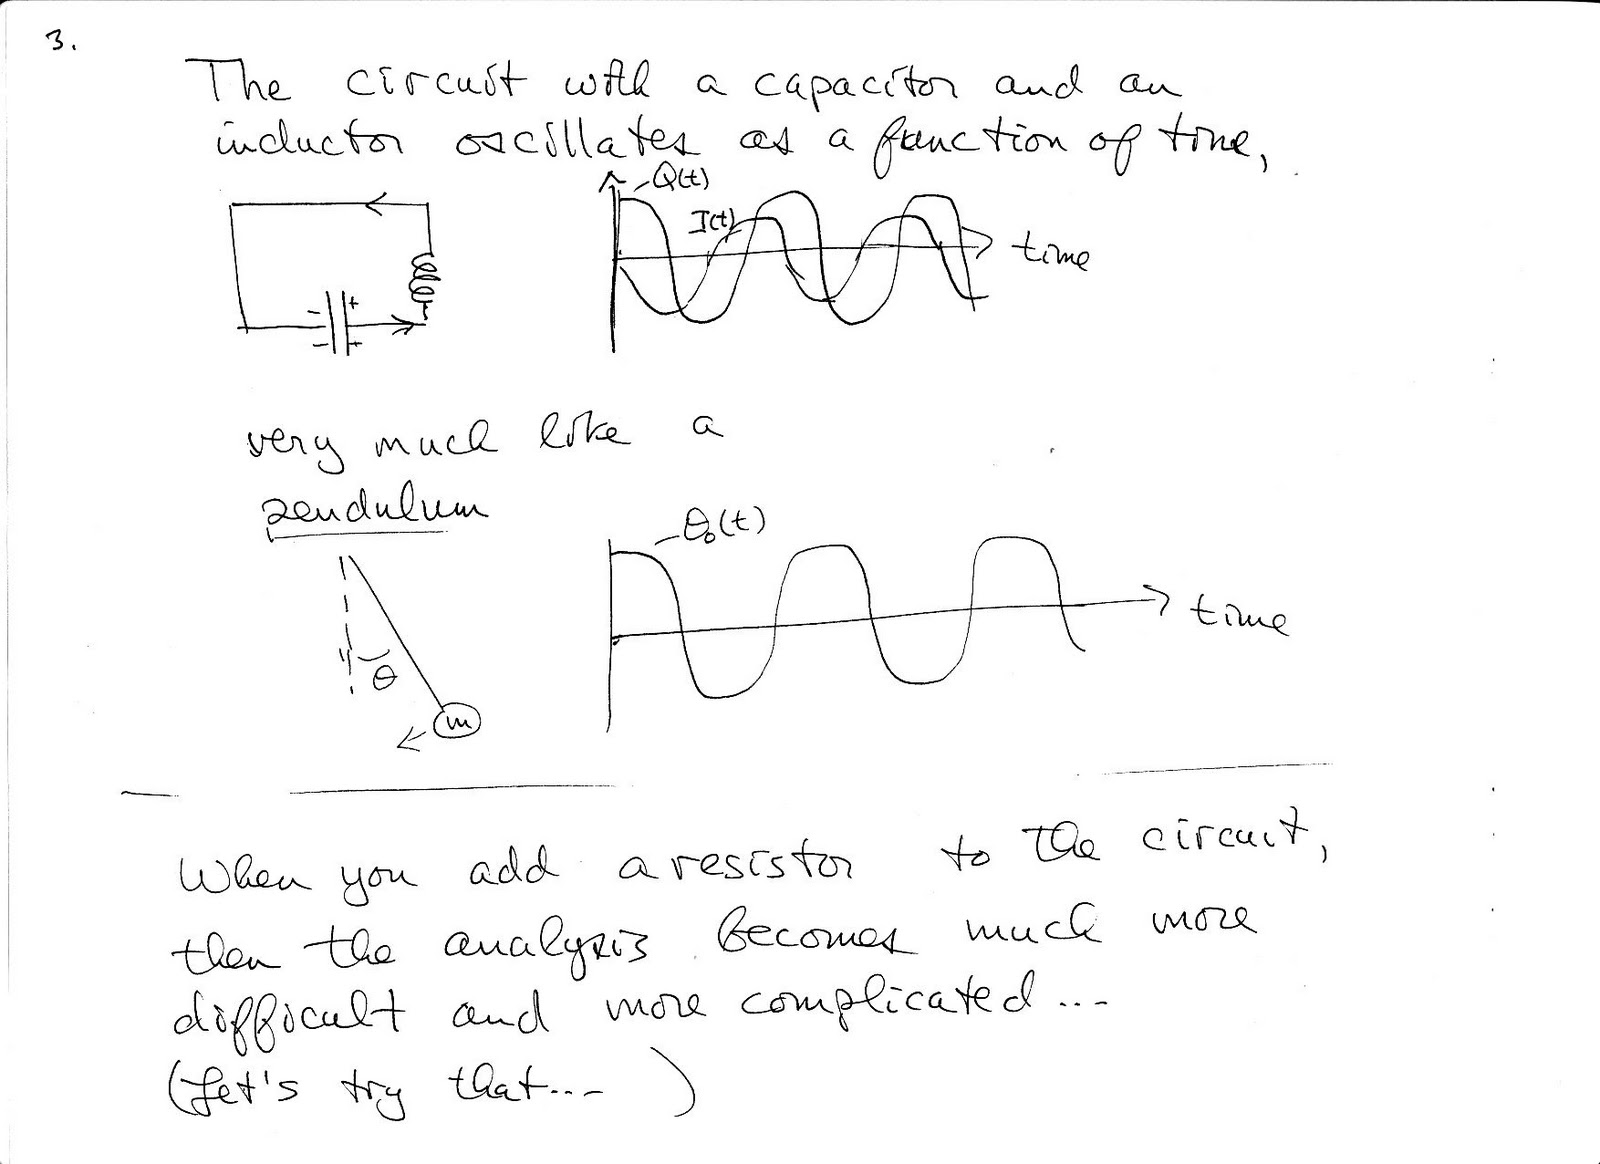 3.
The circuit with a capacitor and an
inductor oscillates as a function of time,
Q(t)
I(t)
time
- +
- +
very much like a
pendulum
θ₀(t)
time
θ
m
When you add a resistor to the circuit,
then the analysis becomes much more
difficult and more complicated...
(Let's try that... )